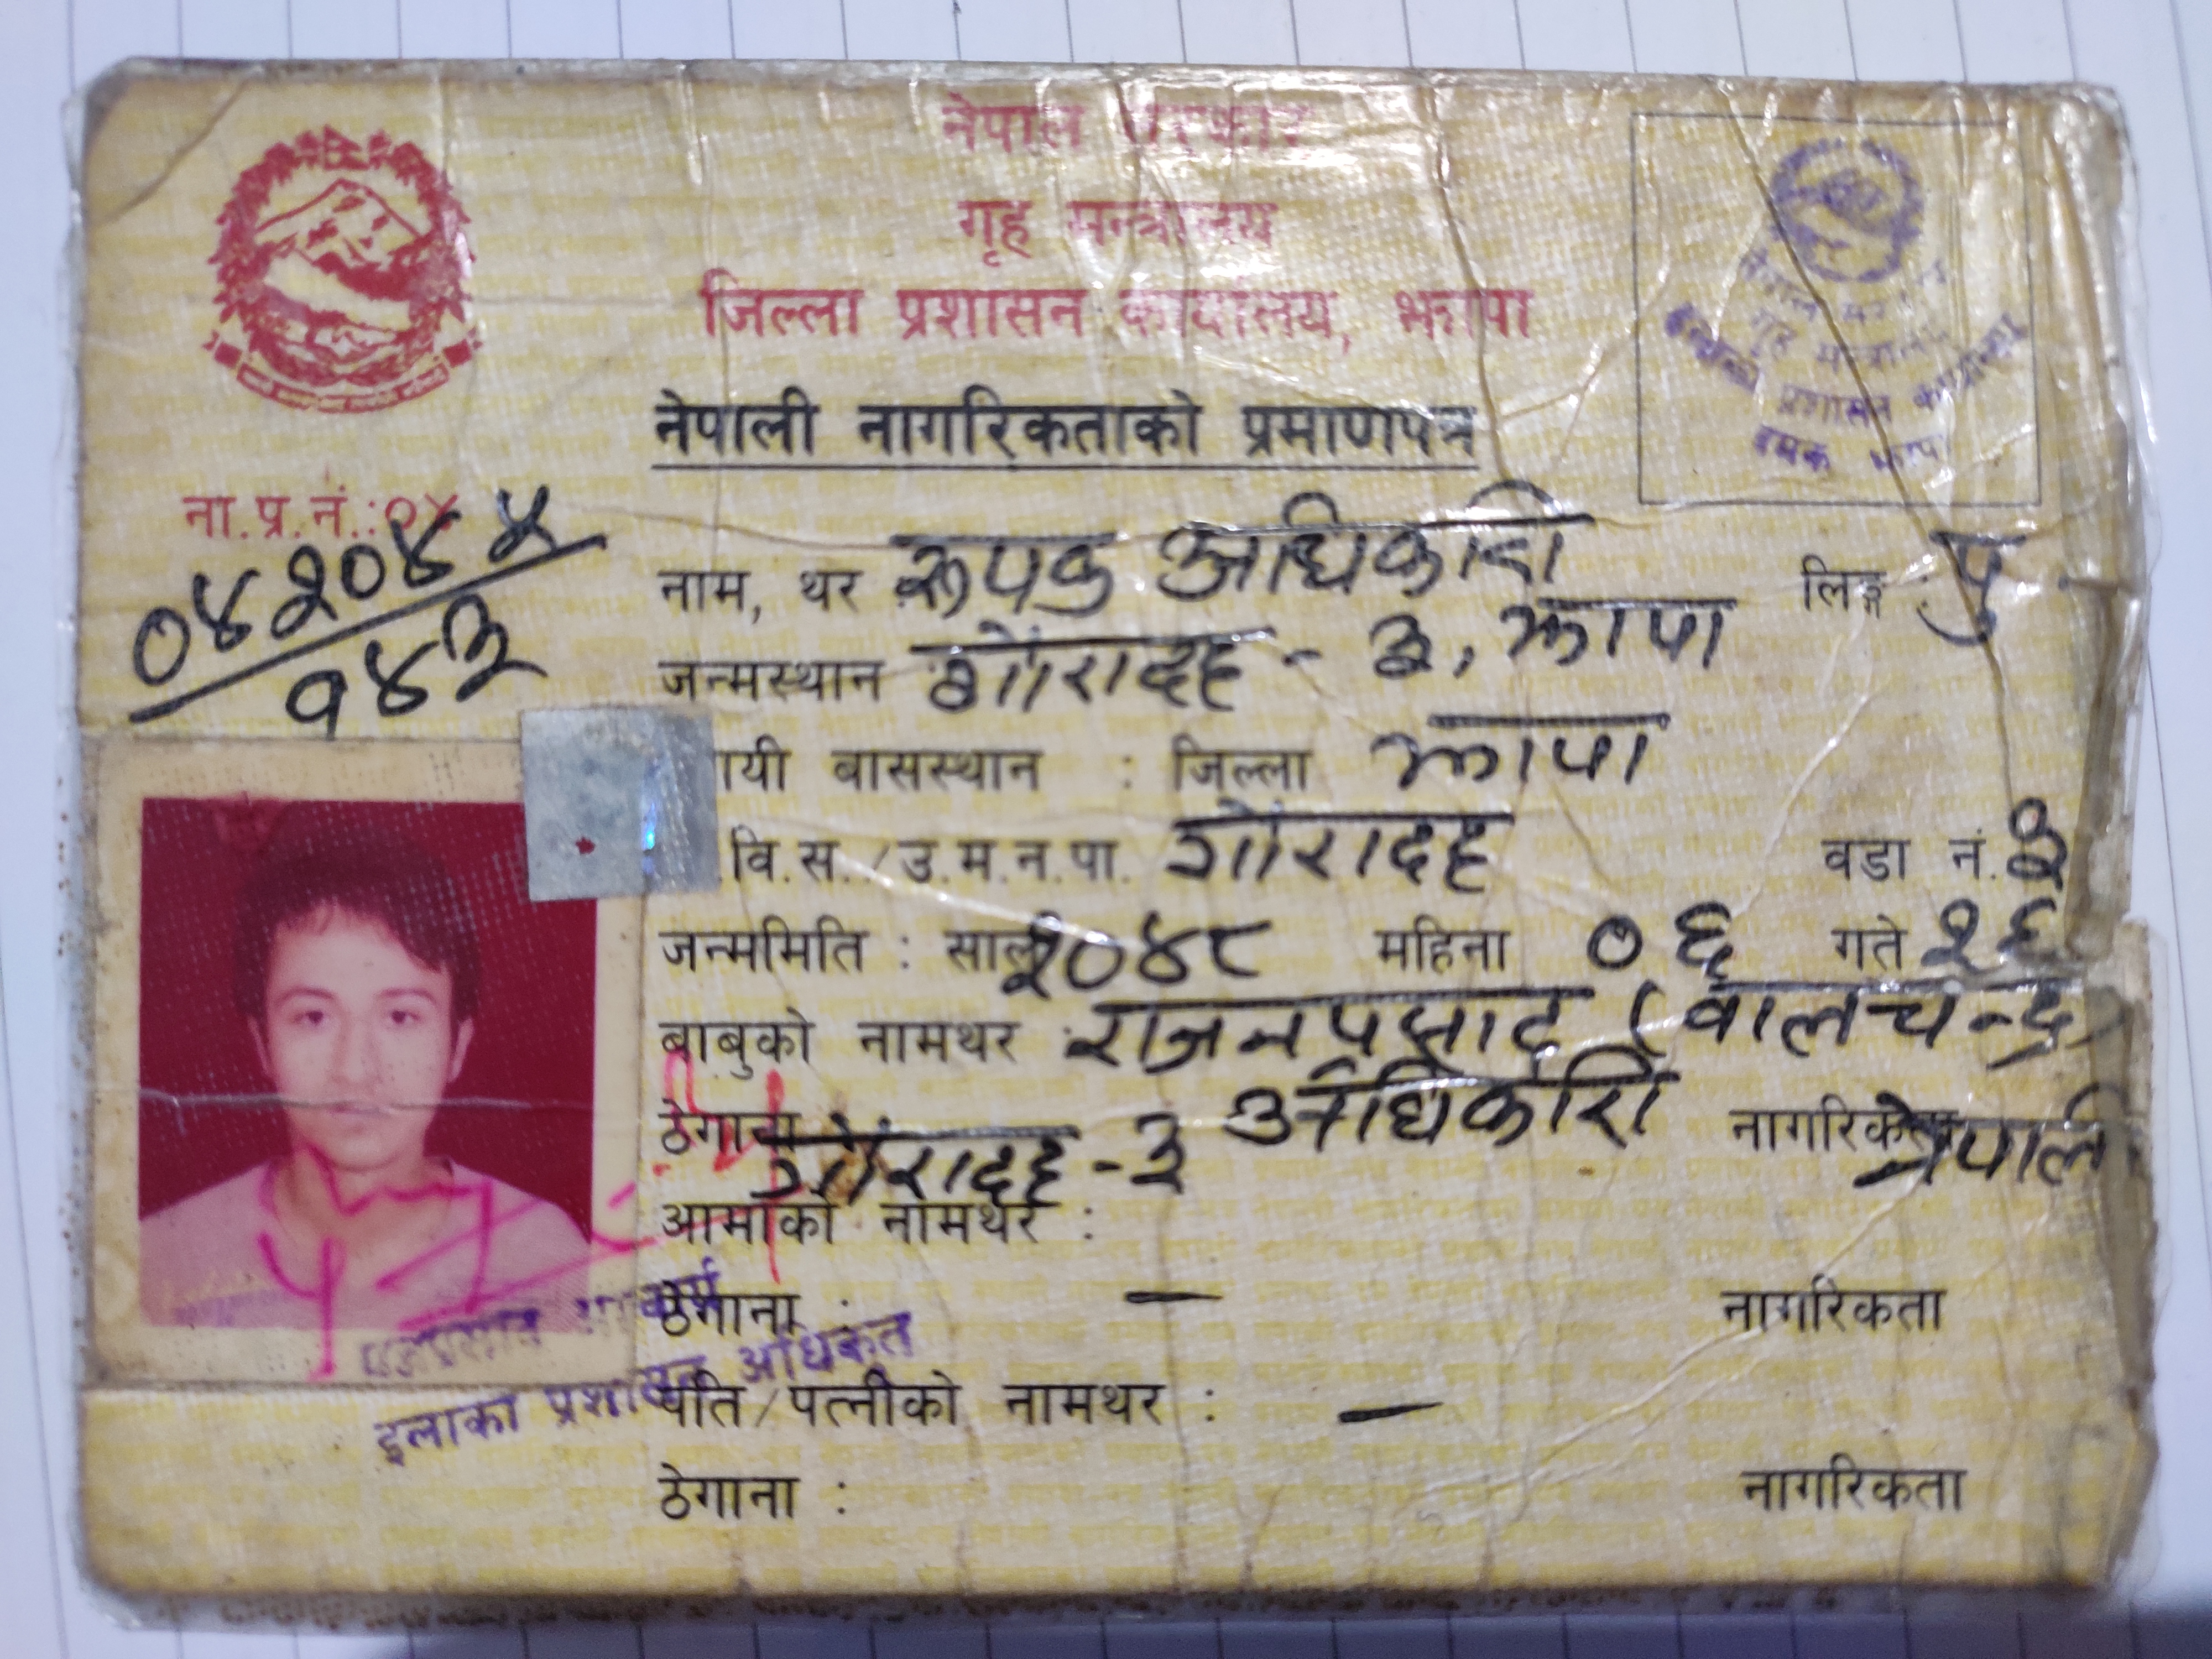 नेपाल सरकार
गृह मन्त्रालय
जिल्ला प्रशासन कार्यालय, झापा
नेपाल सरकार
गृह मन्त्रालय
इलाका प्रशासन कार्यालय
दमक झापा
नेपाली नागरिकताको प्रमाणपत्र
ना.प्र.नं.:०४
०४२०४४
१४३
नाम, थर रूपक अधिकारी लिङ्ग : पु.
जन्मस्थान गौरादह - ३, झापा
ायी बासस्थान : जिल्ला झापा
.वि.स./उ.म.न.पा. गौरादह वडा नं. ३
जन्ममिति : साल २०४८ महिना ०६ गते २६
बाबुको नामथर : राजनप्रसाद (बालचन्द्र)
अधिकारी
ठेगाना गौरादह - ३ नागरिकता नेपाली
आमाको नामथर :
ठेगाना : — नागरिकता
पति/पत्नीको नामथर : —
ठेगाना : नागरिकता
इलाका प्रशासन अधिकृत